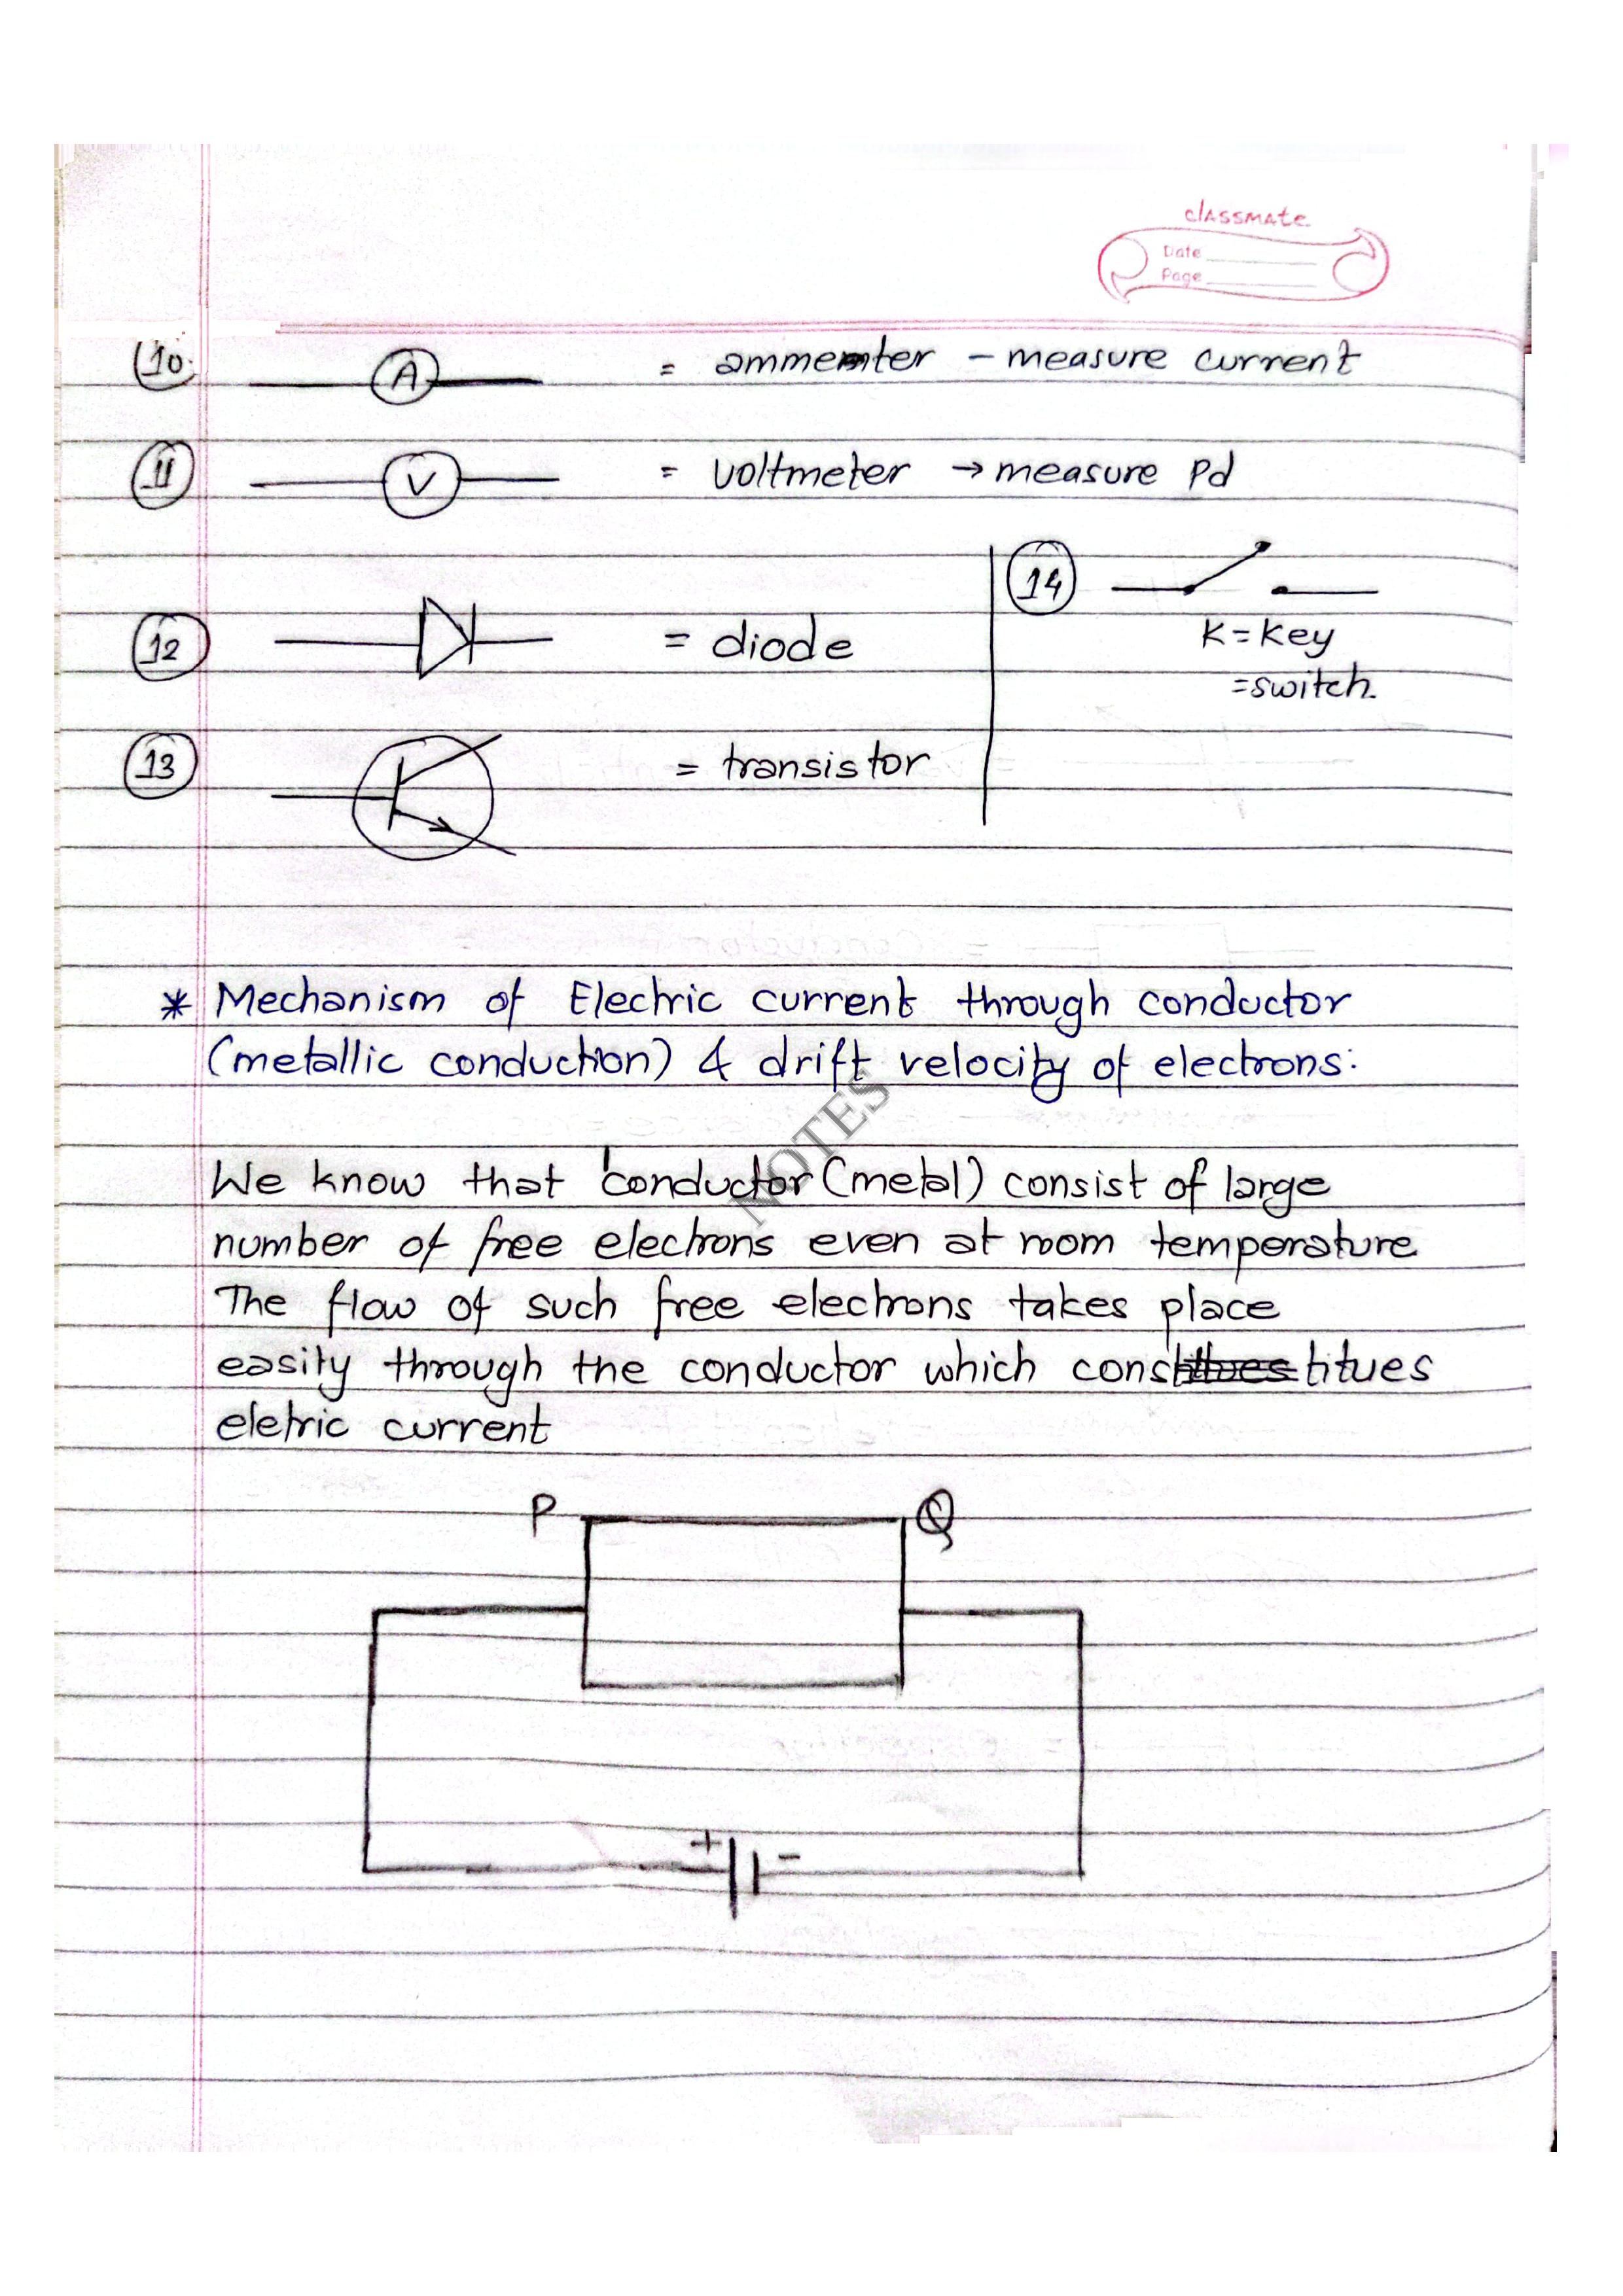 classmate
Date
Page
10. A = ammemter - measure current
11 V = voltmeter → measure Pd
12 = diode
14
K = Key
= switch.
13 = transistor
* Mechanism of Electric current through conductor
(metallic conduction) & drift velocity of electrons:
NOTES
We know that conductor (metal) consist of large
number of free electrons even at room temperature
The flow of such free electrons takes place
easily through the conductor which constitues
eletric current
P Q
+ -